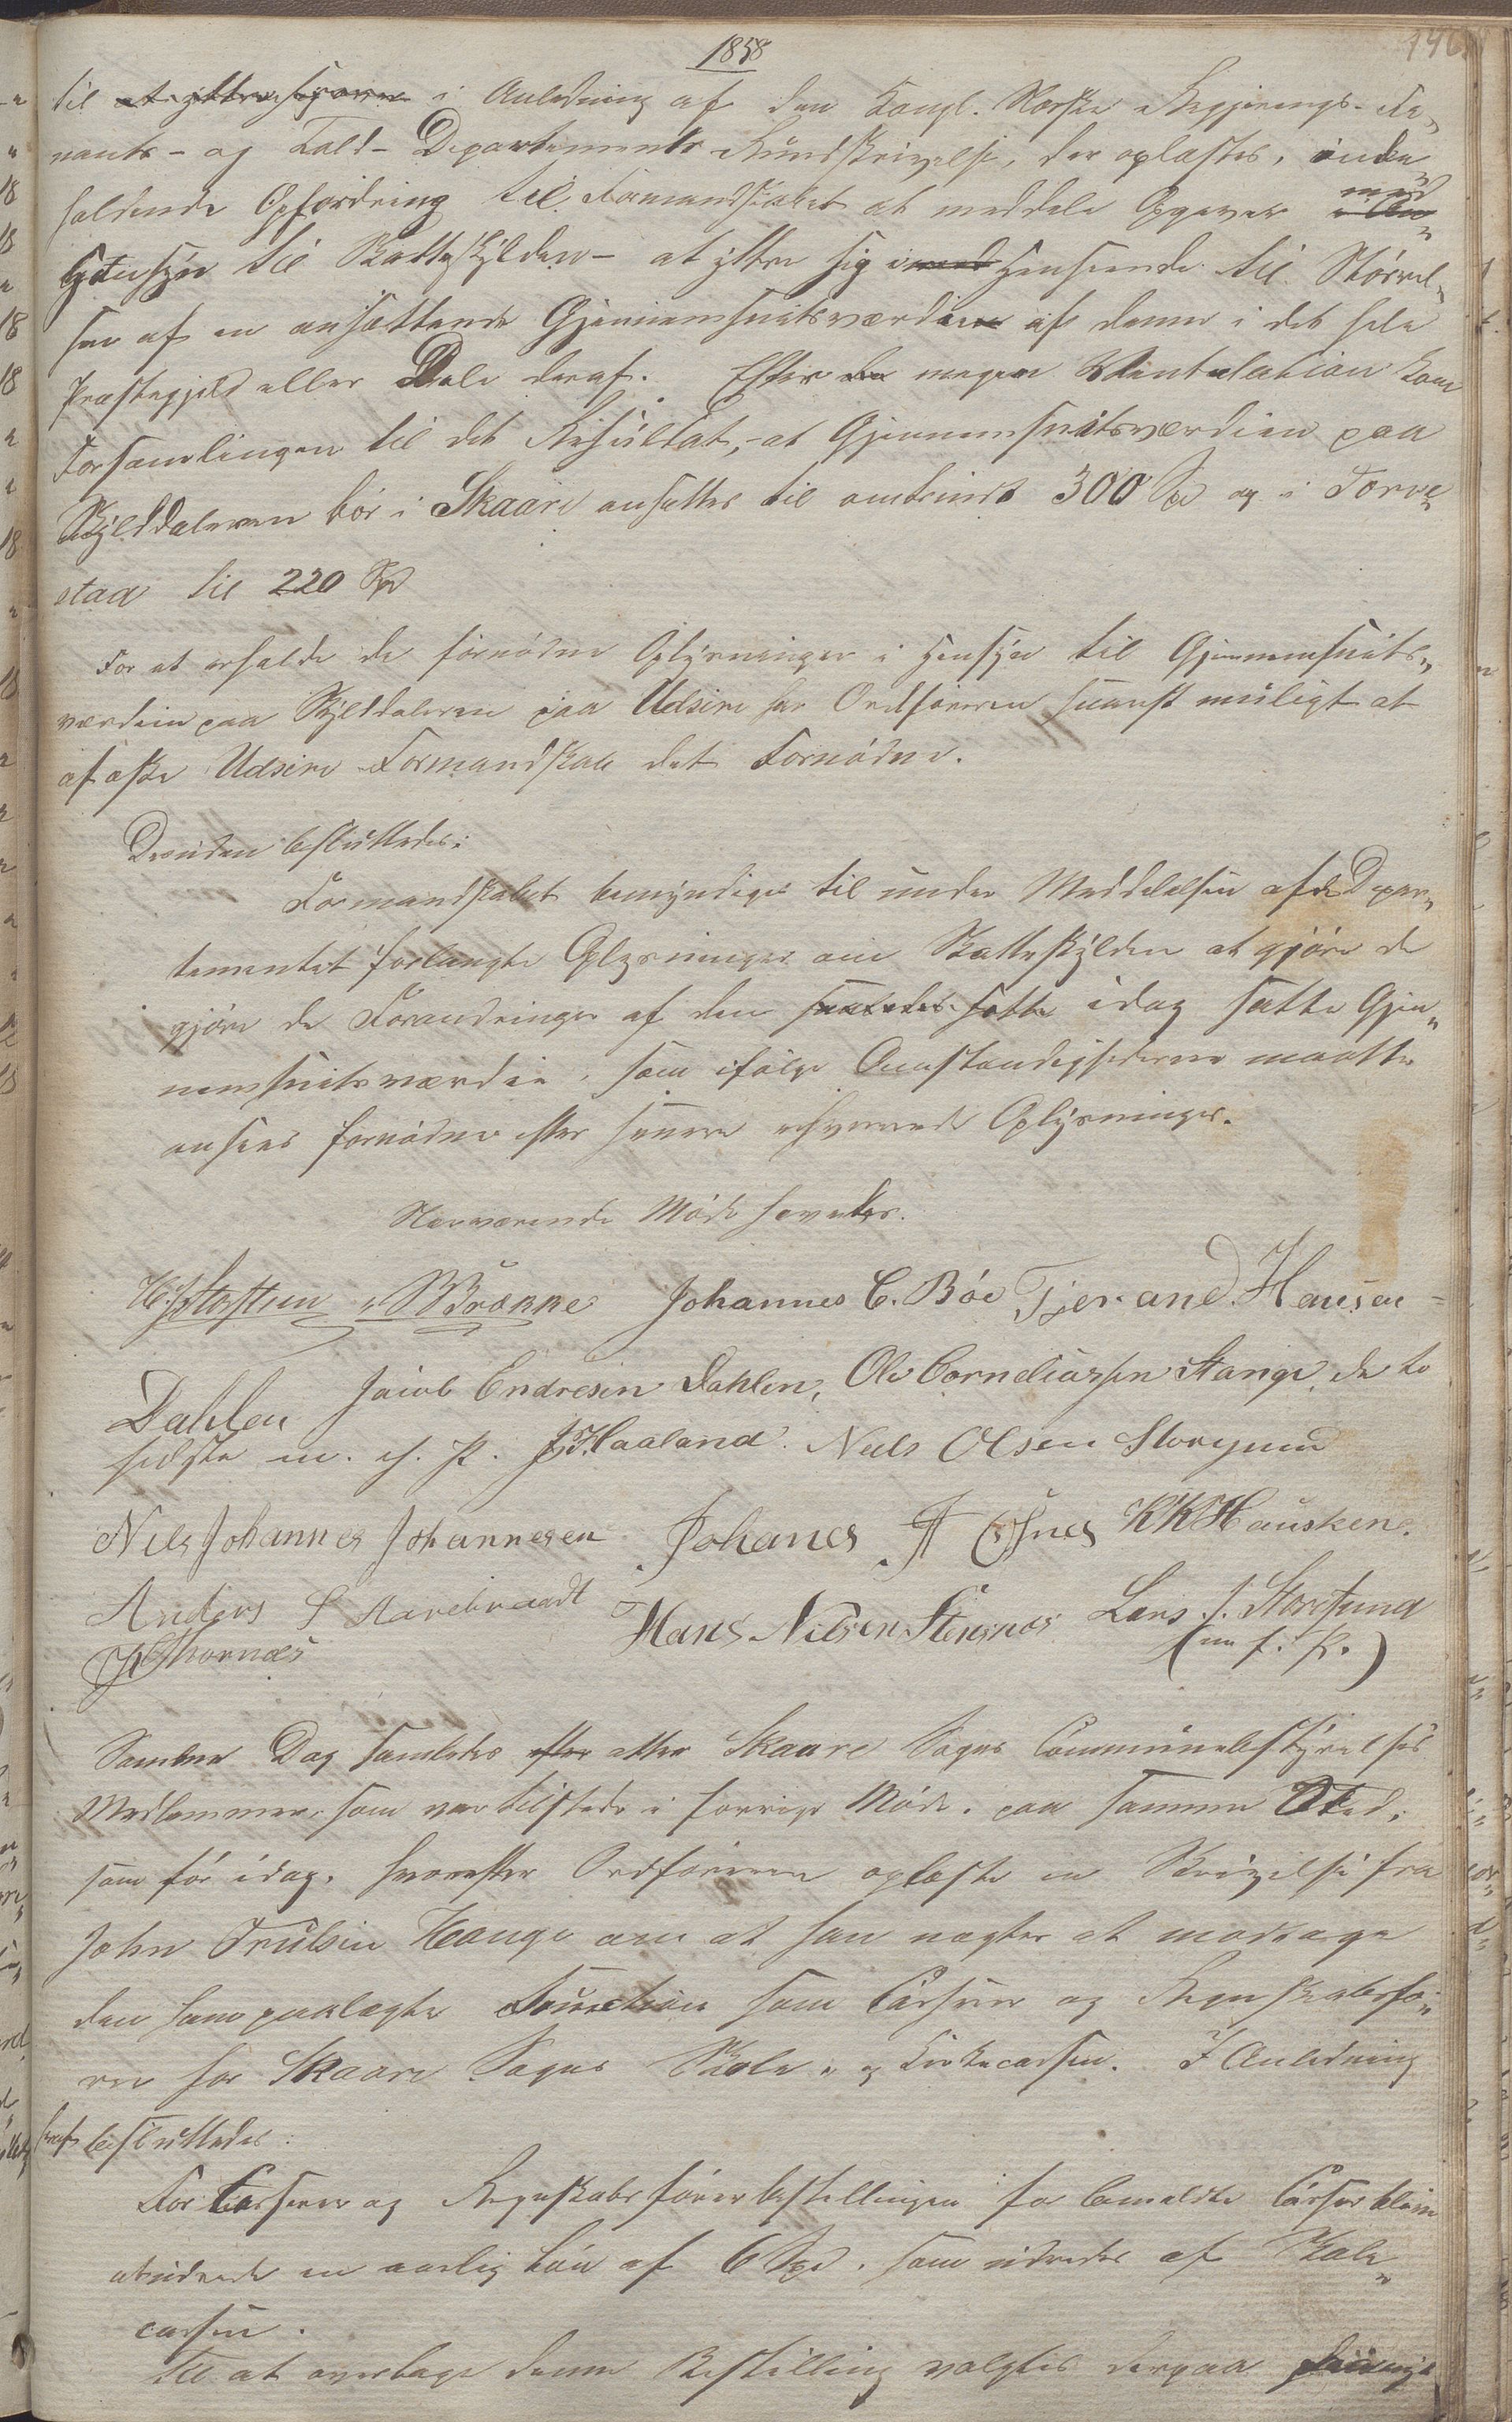 1858
146
til at yttre sig over i Anledning af den Kongl. Norske Regjerings-Fi„
nants- og Told-Departements Rundskrivelse, der oplæstes, inde„
holdende Opfordring til Formandskabet at meddele Opgaver med
Hensyn til Matteskylden - at yttre sig i med Henseende til Størrel„
sen af en ansættende Gjennemsnitsværdien af denne i det hele
Præstegjeld eller Dele deraf. Efter megen Ventelation kom
Forsamlingen til det Resultat, at Gjennemsnitsværdien paa
Skylddaleren bør i Skaare ansættes til omtrindt 300 Spd og i Torve„
stad til 220 Spd
For at erholde de fornødne Oplysninger i Hensyn til Gjennemsnits„
værdien paa Skylddaleren paa Udsire har Ordføreren snarest muligt at
afæske Udsire Formandskab det Fornødne.
Desuden besluttedes:
Formandskabet bemyndiges til under Meddelelsen af de Depar„
tementet forlangte Oplysninger om Matteskylden at gjøre de
gjøre de Forandringer af den saaledes satte idag satte Gjen„
nemsnitsværdie, som ifølge Omstændighederne maatte
ansees fornødne efter senere erhvervende Oplysninger.
Nærværende Møde hævedes.
Brønne Johannes C. Bøe Tjerand Hansen
Dahlen Jacob Endresen Dahlen, Ole Corneliussen Stange, de to
sidste m. f. P. J. Haaland. Niels Olsen Storesund
Nils Johannes Johannesen Johanes A Øsnes KK Hausken.
Anders S Aarebraadt Hans Nilsen Stensnæs Lars J. Storesund
Thornæs (m f. P.)
Samme Dag samledes efter atter Skaare Sogns Communebestyrelses
Medlemmer, som var tilstede i forrige Møde, paa samme Sted,
som før idag, hvorefter Ordføreren oplæste en Skrivelse fra
John Trulsen Hauge om at han negter at modtage
den ham paalagte Function som Casserer og Regnskabsfø„
rer for Skaare Sogns Skole- og Kirkecasse. I Anledning
heraf besluttedes:
For Casserer og Regnskabsførerbestillingen for bemeldte Casser bliver
at udrede en aarlig Løn af 6 Spd. som udredes af Skole„
cassen.
Til at overtage denne Bestilling valgtes derpaa